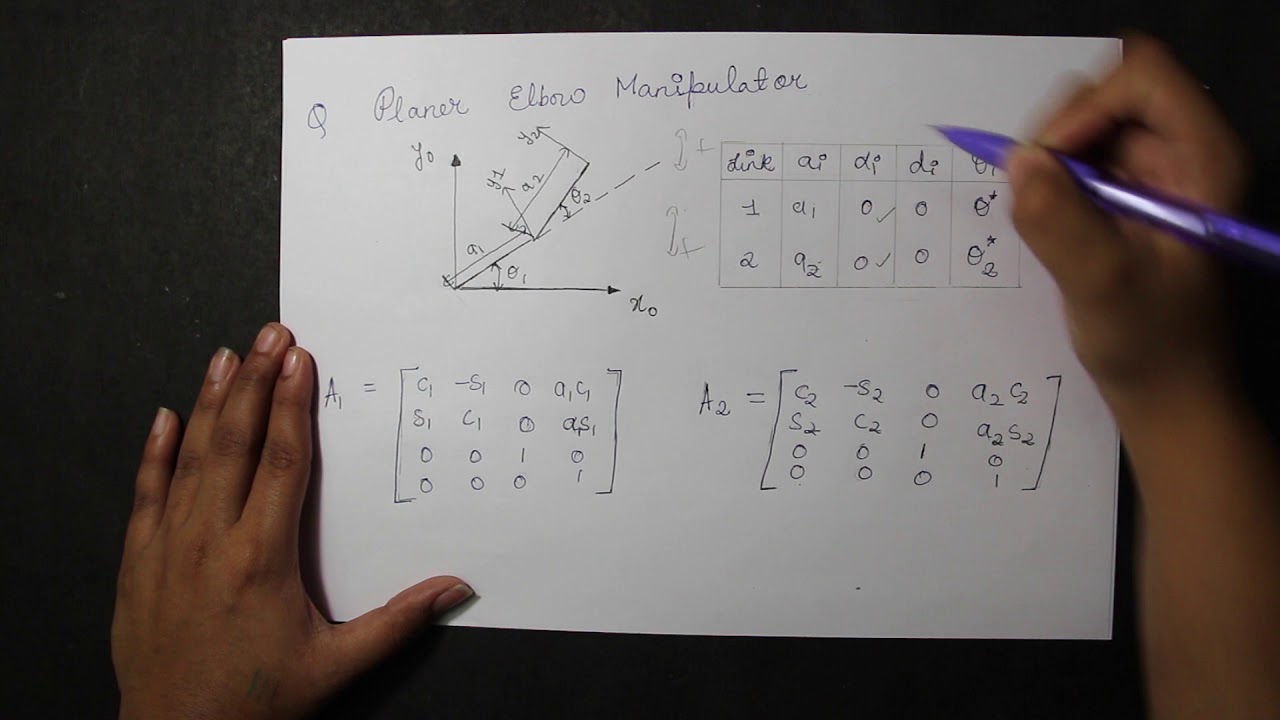 Q Planer Elbow Manipulator
y₀
y₂
y₁
a₂
θ₂
a₁
θ₁
x₀
Link aᵢ αᵢ dᵢ θᵢ
1 a₁ 0 ✓ 0 θ*
2 a₂ 0 ✓ 0 θ₂*
A₁ = [ C₁ -S₁ 0 a₁C₁
S₁ C₁ 0 a₁S₁
0 0 1 0
0 0 0 1 ]
A₂ = [ C₂ -S₂ 0 a₂C₂
S₂ C₂ 0 a₂S₂
0 0 1 0
0 0 0 1 ]